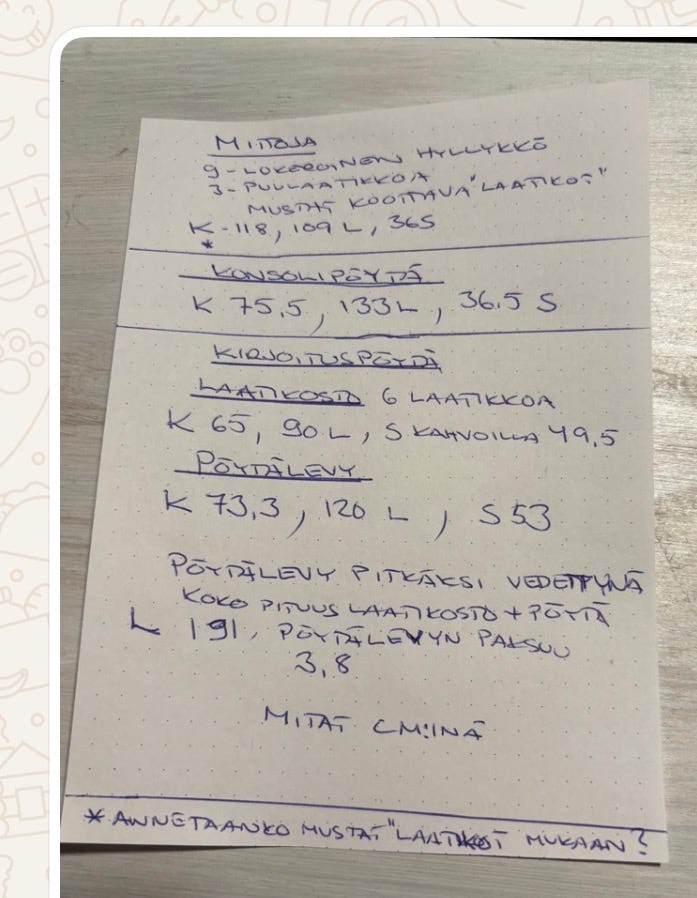 MITTOJA
9-LOKEROINEN HYLLYKKÖ
3-PUULAATIKKOA
MUSTAT KOOTTAVA "LAATIKOT"
K-118, 109 L, 36S
*
KONSOLIPÖYTÄ
K 75,5, 133L, 36.5 S
KIRJOITUSPÖYDÄ
LAATIKOSTO 6 LAATIKKOA
K 65, 90 L, S KAHVOILLA 49,5
PÖYDÄLEVY
K 73,3, 120 L, S 53
PÖYDÄLEVY PITKÄKSI VEDETTYNÄ
KOKO PITUUS LAATIKOSTO + PÖYTÄ
L 191, PÖYDÄLEVYN PAKSUU
3,8
MITAT CM:INÄ
* ANNETAANKO MUSTAT "LAATIKOT MUKAAN?